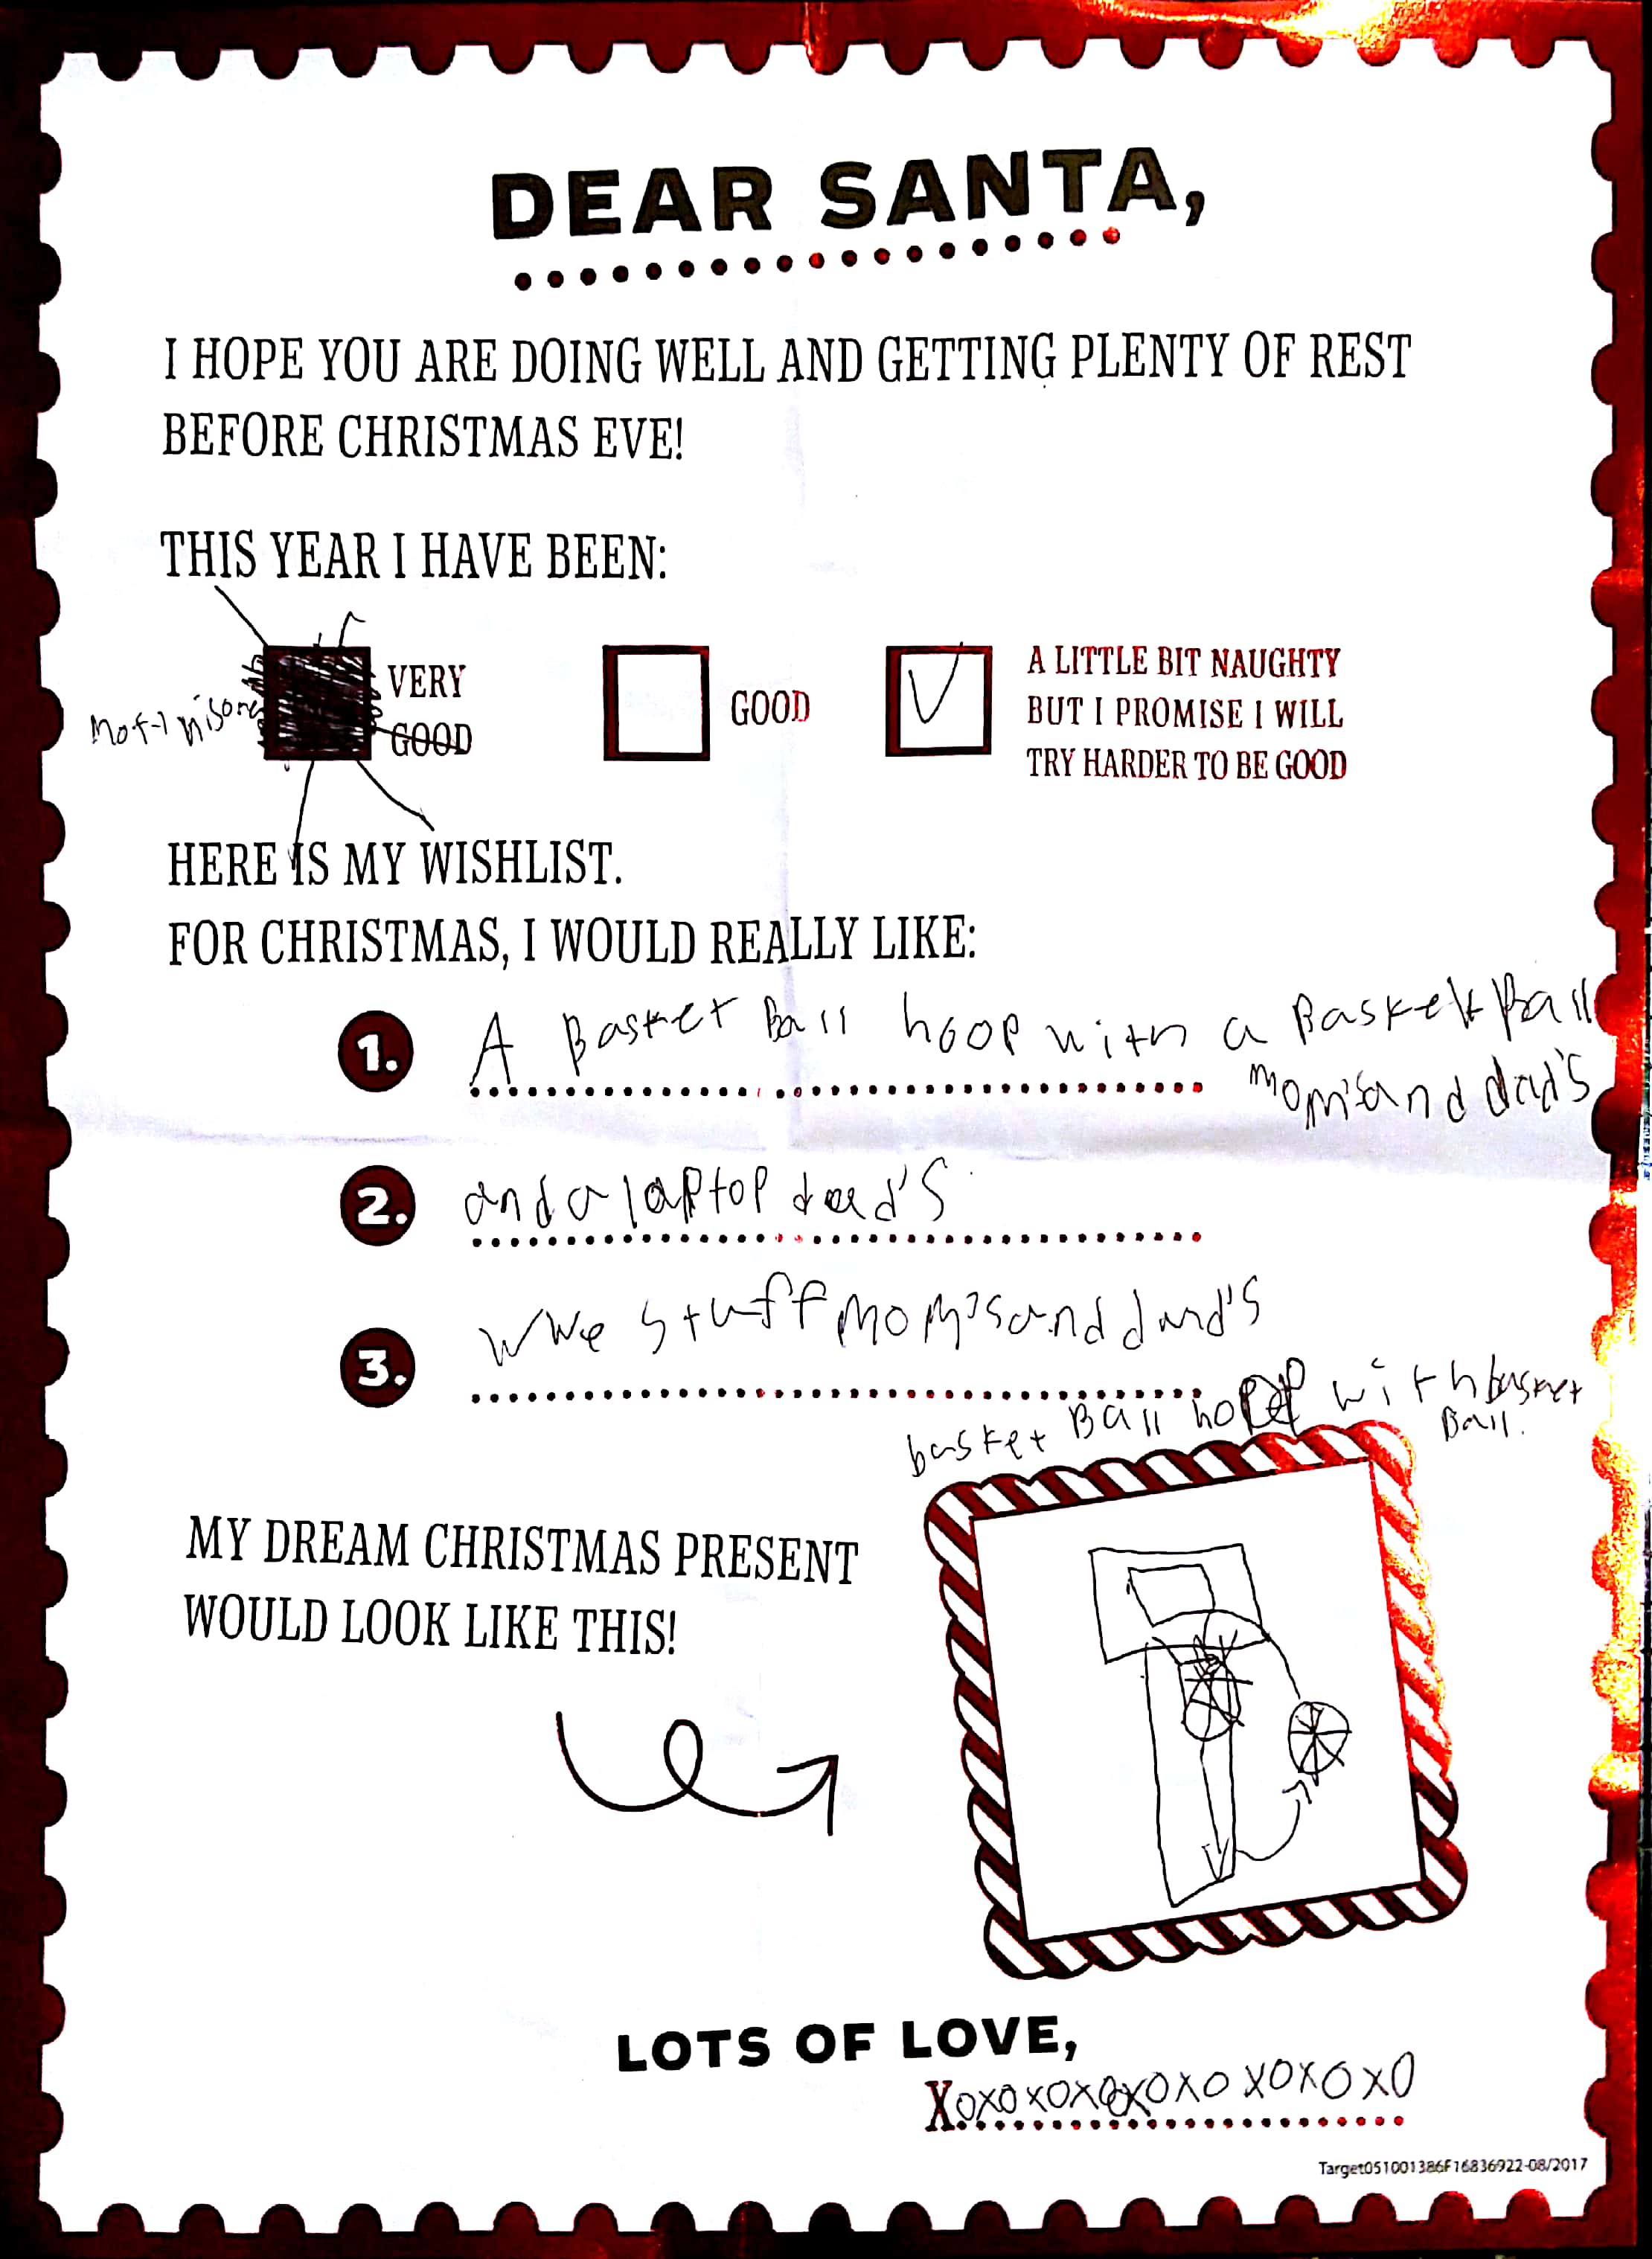 DEAR SANTA,
I HOPE YOU ARE DOING WELL AND GETTING PLENTY OF REST
BEFORE CHRISTMAS EVE!
THIS YEAR I HAVE BEEN:
VERY
GOOD
GOOD
A LITTLE BIT NAUGHTY
BUT I PROMISE I WILL
TRY HARDER TO BE GOOD
HERE IS MY WISHLIST.
FOR CHRISTMAS, I WOULD REALLY LIKE:
1. A Basket Ball hoop with a Basket Ball
mom's and dad's
2. and a laptop dad's
3. wwe stuff mom's and dad's
basket Ball hoop with basket
Ball.
MY DREAM CHRISTMAS PRESENT
WOULD LOOK LIKE THIS!
LOTS OF LOVE,
XOXOXOXOXOXOXOXOXOXO
Target051001386F16836922-08/2017